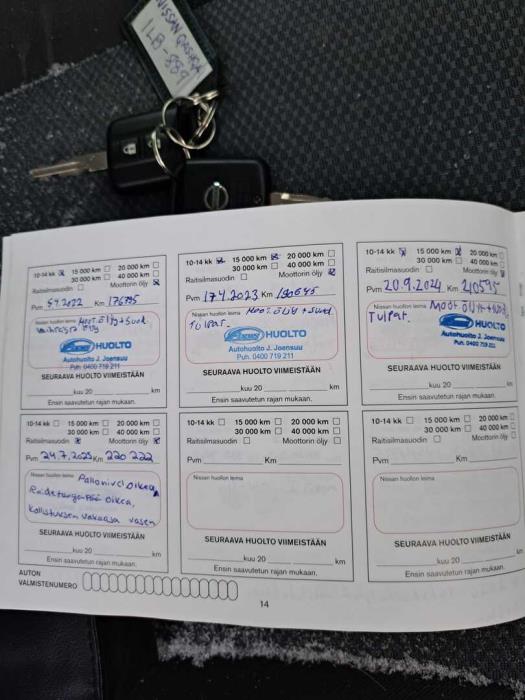 NISSAN QASHQAI
ILB-889
10-14 kk 15 000 km 20 000 km
30 000 km 40 000 km
Raitisilmasuodin Moottorin öljy
Pvm 5.7.2022 Km 176795
Nissan huollon leima Moot. öljy + Suod.
HUOLTO
Autohuolto J. Joensuu
Puh. 0400 719 211
SEURAAVA HUOLTO VIIMEISTÄÄN
kuu 20 km
Ensin saavutetun rajan mukaan.
10-14 kk 15 000 km 20 000 km
30 000 km 40 000 km
Raitisilmasuodin Moottorin öljy
Pvm 17.4.2023 Km 190645
Nissan huollon leima Moot. öljy + Suod.
Tulpat.
HUOLTO
Autohuolto J. Joensuu
Puh. 0400 719 211
SEURAAVA HUOLTO VIIMEISTÄÄN
kuu 20 km
Ensin saavutetun rajan mukaan.
10-14 kk 15 000 km 20 000 km
30 000 km 40 000 km
Raitisilmasuodin Moottorin öljy
Pvm 20.9.2024 Km 210595
Nissan huollon leima Moot. öljy + Suod.
Tulpat.
HUOLTO
Autohuolto J. Joensuu
Puh. 0400 719 211
SEURAAVA HUOLTO VIIMEISTÄÄN
kuu 20 km
Ensin saavutetun rajan mukaan.
10-14 kk 15 000 km 20 000 km
30 000 km 40 000 km
Raitisilmasuodin Moottorin öljy
Pvm 24.7.2025 Km 220 222
Nissan huollon leima Pallonivel oikea,
Raidetangonpää oikea,
Kallistuksen vakaaja vasen
SEURAAVA HUOLTO VIIMEISTÄÄN
kuu 20 km
Ensin saavutetun rajan mukaan.
10-14 kk 15 000 km 20 000 km
30 000 km 40 000 km
Raitisilmasuodin Moottorin öljy
Pvm Km
Nissan huollon leima
SEURAAVA HUOLTO VIIMEISTÄÄN
kuu 20 km
Ensin saavutetun rajan mukaan.
10-14 kk 15 000 km 20 000 km
30 000 km 40 000 km
Raitisilmasuodin Moottorin öljy
Pvm Km
Nissan huollon leima
SEURAAVA HUOLTO VIIMEISTÄÄN
kuu 20 km
Ensin saavutetun rajan mukaan.
AUTON
VALMISTENUMERO
14